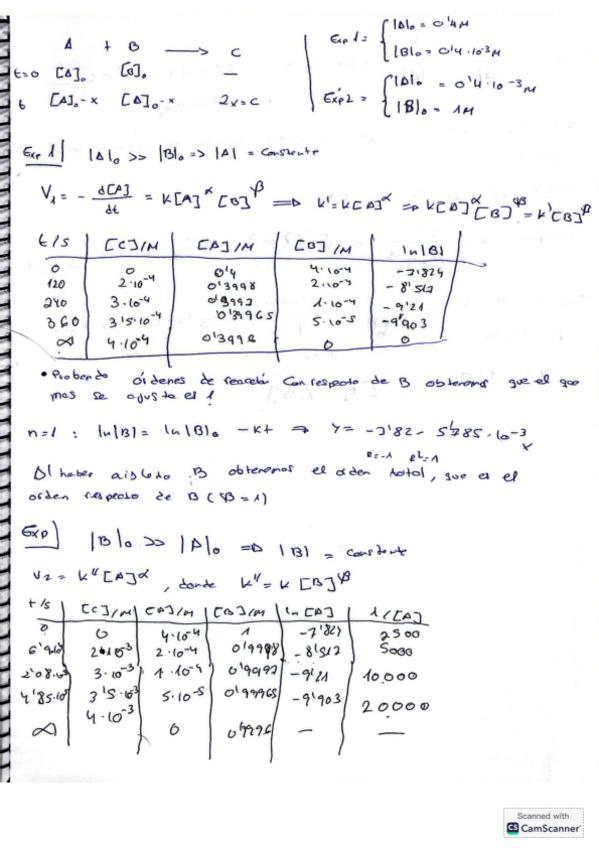 A + B ⟶ C
t=0 [A]₀ [B]₀ —
t [A]₀-x [A]₀-x 2x=C
Exp 1 = { |A|₀ = 0'4M
|B|₀ = 0'4·10⁻³M
Exp2 = { |A|₀ = 0'4·10⁻³M
|B|₀ = 1M
Exp 1 | |A|₀ >> |B|₀ => |A| = constante
V₁ = - d[A]/dt = K[A]^α [B]^β => K' = K[A]^α => K[A]^α [B]^β = K'[B]^β
t/s | [C]/M | [A]/M | [B]/M | ln|B|
0 0 0'4 4·10⁻⁴ -7'824
120 2·10⁻⁴ 0'3998 2·10⁻⁴ -8'517
240 3·10⁻⁴ 0'3997 1·10⁻⁴ -9'21
360 3'5·10⁻⁴ 0'39965 5·10⁻⁵ -9'903
∞ 4·10⁻⁴ 0'3996 0 0
• Probando órdenes de reacción con respecto de B obtenemos que el que
mas se ajusta es 1
n=1 : ln|B| = ln|B|₀ - Kt => Y = -7'82 - 5'785·10⁻³ x
R=-1 R²=1
Al haber aislado B obtenemos el orden total, que es el
orden respecto de B (β=1)
Exp | |B|₀ >> |A|₀ => |B| = constante
V₂ = K''[A]^α , donde K'' = K [B]^β
t/s | [C]/M | [A]/M | [B]/M | ln[A] | 1/[A]
0 0 4·10⁻⁴ 1 -7'824 2500
2·10⁻³ 2·10⁻⁴ 0'9998 -8'517 5000
2'08·10³ 3·10⁻³ 1·10⁻⁴ 0'9997 -9'21 10.000
4'85·10³ 3'5·10⁻³ 5·10⁻⁵ 0'99965 -9'903 20.000
∞ 4·10⁻³ 0 0'9996 — —
Scanned with
CS CamScanner